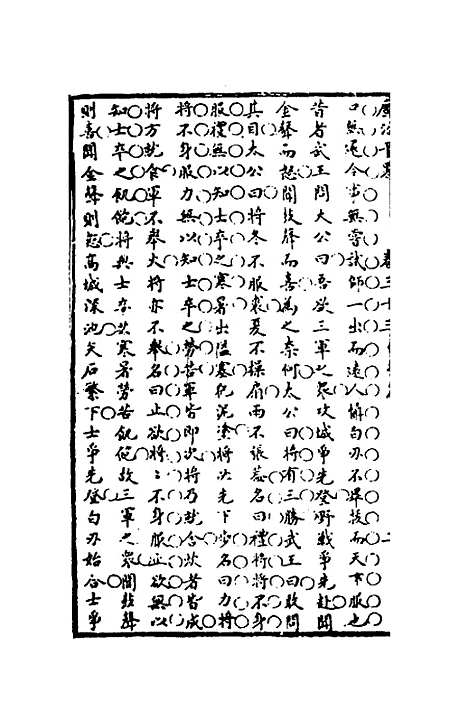 口無還令事無嘗試師一出而遠人懾白刃不舉故而天下服也
昔者武王問太公曰吾欲三軍之衆攻城爭先登野戰爭先赴聞
金聲而怒聞鼓聲而喜爲之奈何太公曰將有三勝武王曰敢問
其目太公曰將冬不服裘夏不操扇雨不張蓋名曰禮將將不身
服禮無以知士卒之寒暑出隘塞犯泥塗將必先下步名曰力將
將不身服力無以知士卒之勞苦軍皆即次將乃就舍炊者皆成
將方就食軍不舉火將亦不舉名曰止欲將將不身服止欲無以
知士卒之飢飽將與士卒共寒暑勞苦飢飽故三軍之衆聞鼓聲
則喜聞金聲則怒高城深池矢石繁下士爭先登白刃始合士爭